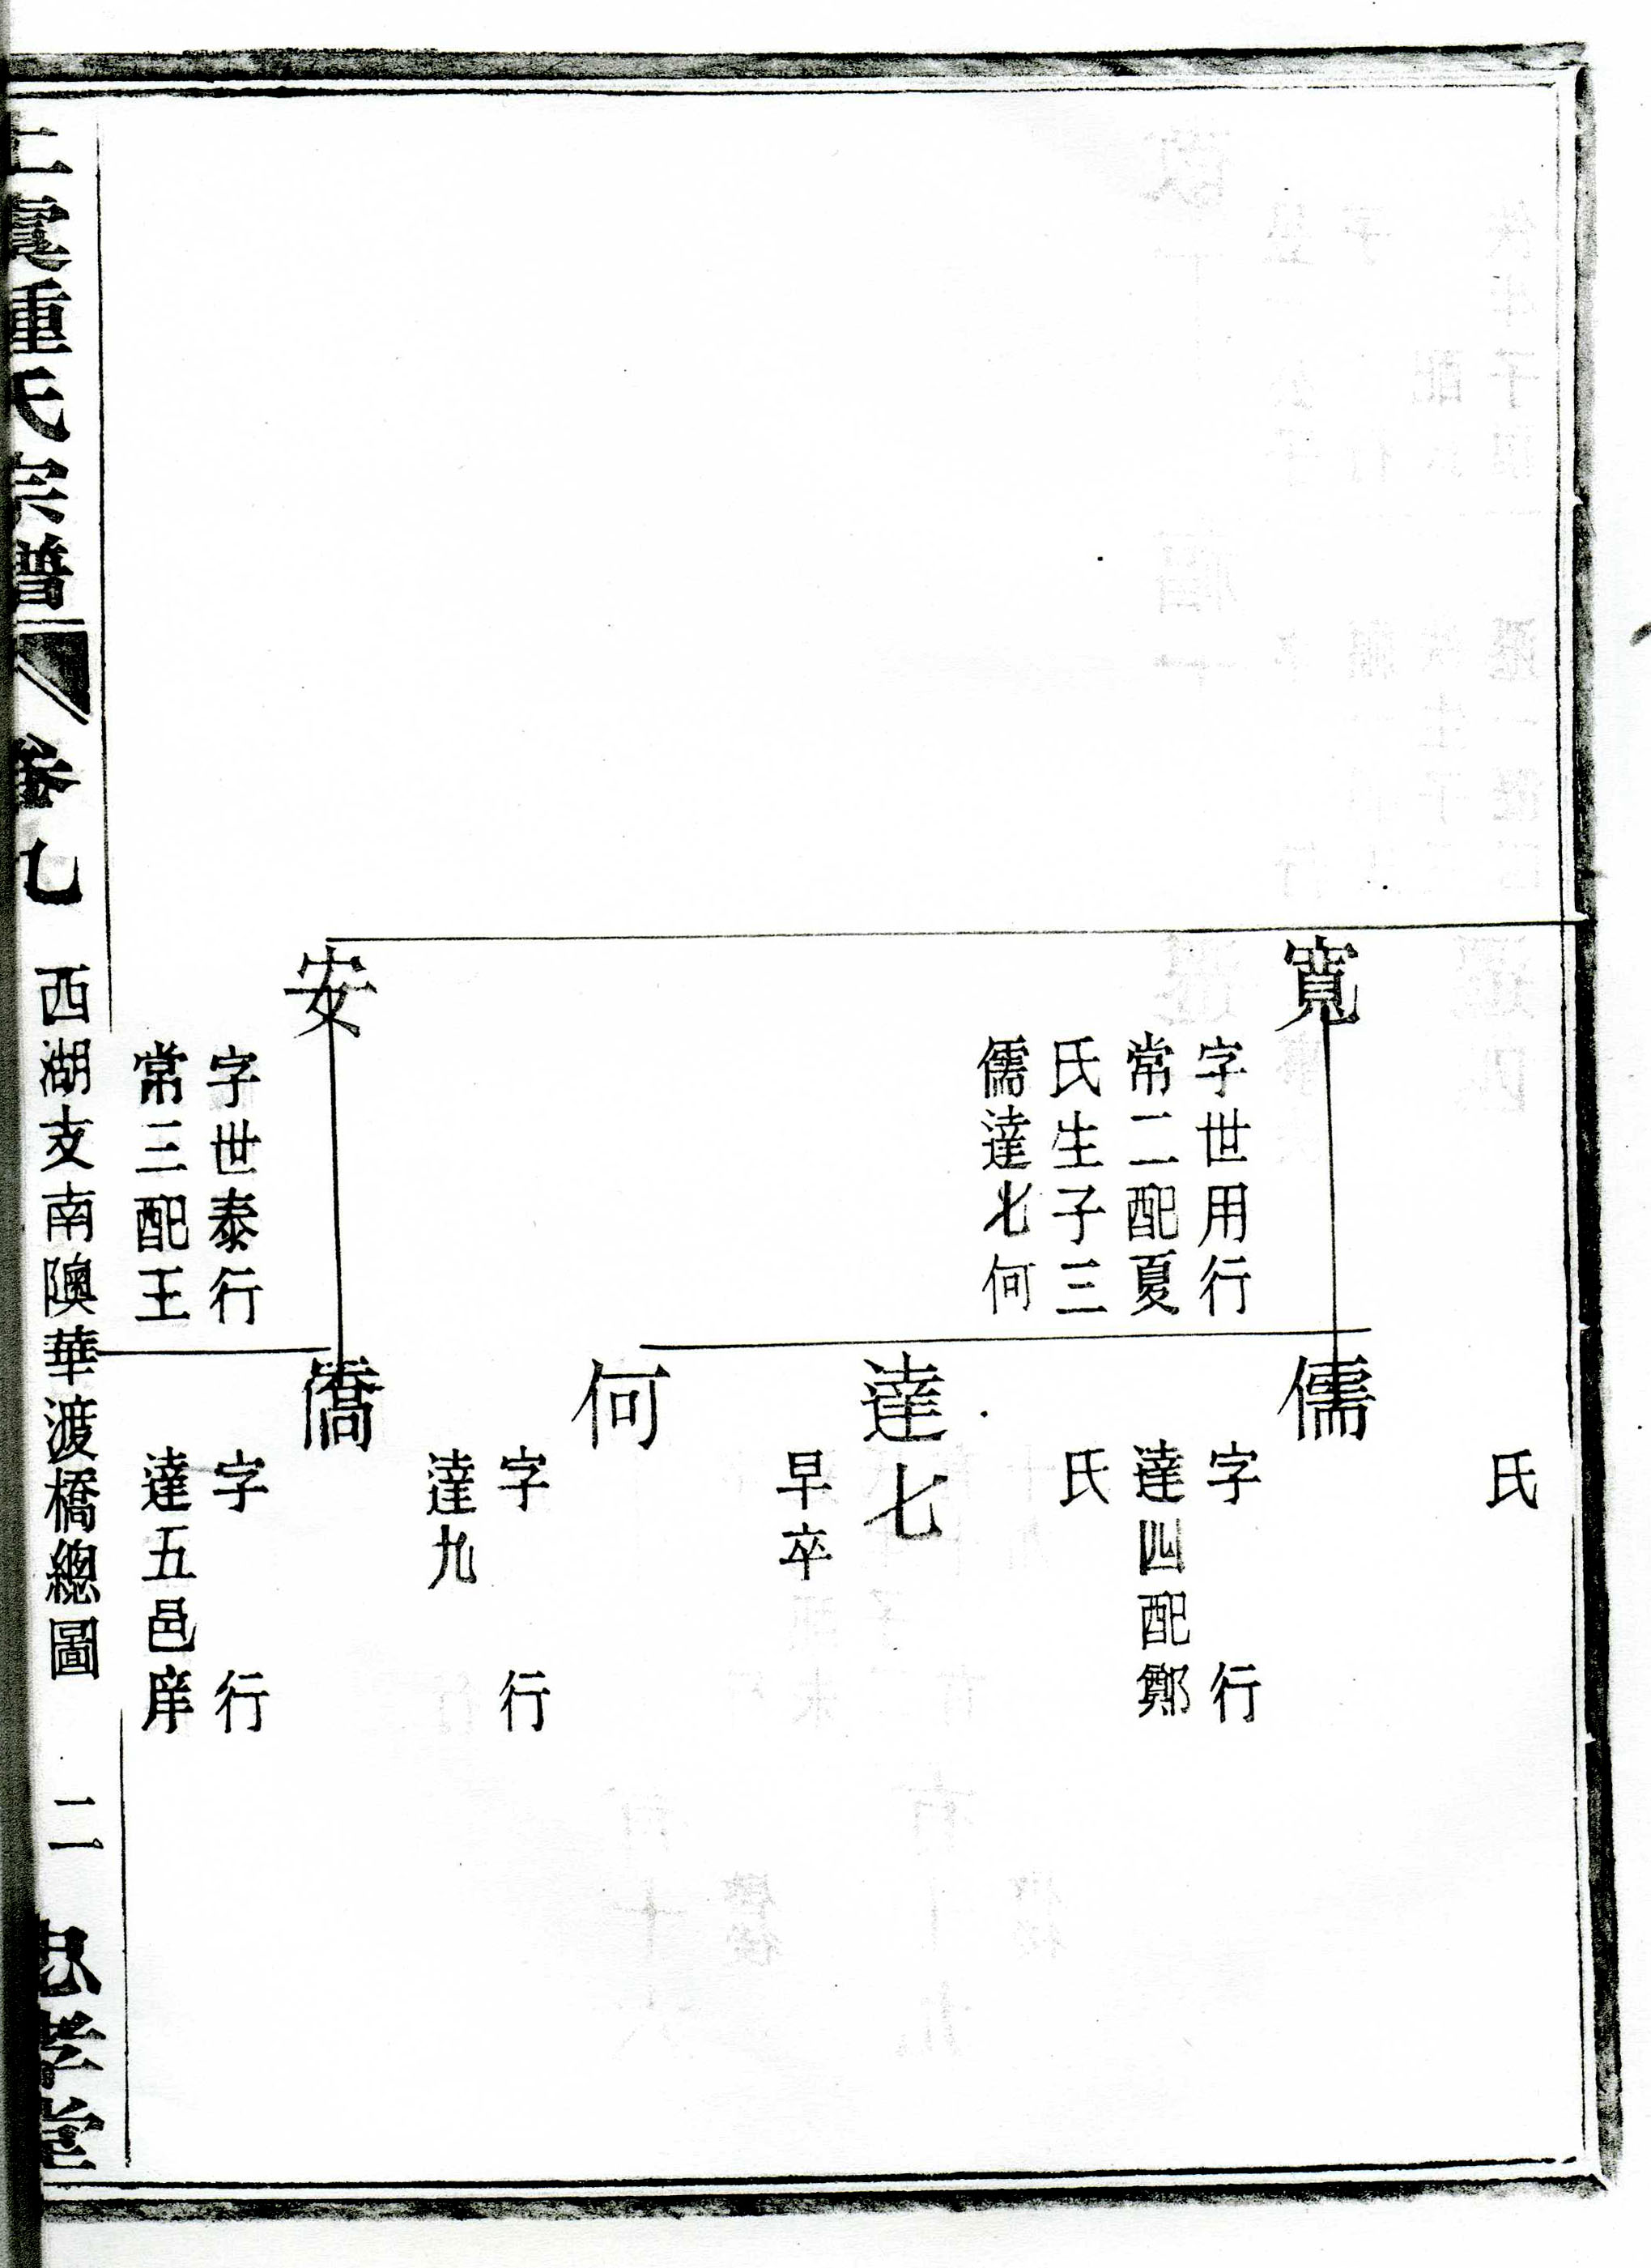 氏
寬
字世用行
常二配夏
氏生子三
儒達七何
安
字世泰行
常三配王
儒
字 行
達四配鄭
氏
達七
早卒
何
字 行
達九
僑
字 行
達五邑庠
上虞鍾氏宗譜
卷七
西湖支南隩華渡橋總圖
二
忠孝堂